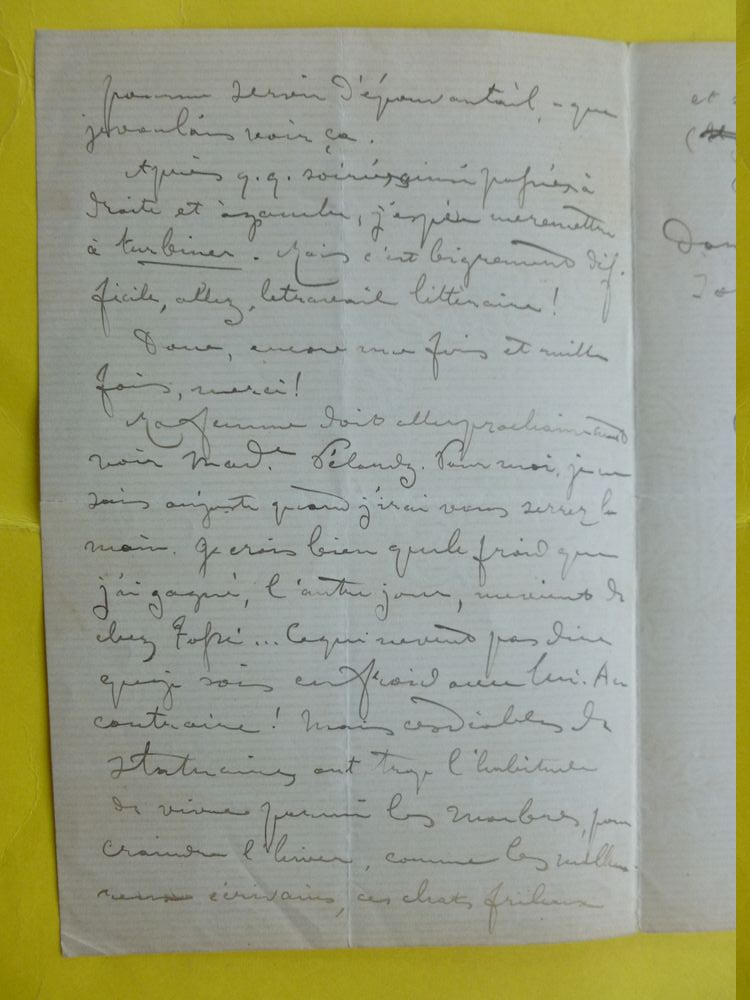 pour me servir d'épouvantail, – que
je voulais voir ça.
Après q.q. soirées ainsi passées à
droite et à gauche, j'espère me remettre
à turbiner. Mais c'est bigrement dif-
ficile, allez, le travail littéraire!
Donc, encore une fois et mille
fois, merci!
Ma femme doit aller prochainement
voir Mad.e Pour moi, je ne
sais au juste quand j'irai vous serrer la
main. Je crois bien que le froid que
j'ai gagné, l'autre jour, me vient de
chez ... Ce qui ne veut pas dire
que je sois en froid avec lui. Au
contraire! Mais ces diables de
statuaires ont trop l'habitude
de vivre parmi les marbres, pour
craindre l'hiver, comme les malheu-
reux écrivains, ces chats frileux
et
Don